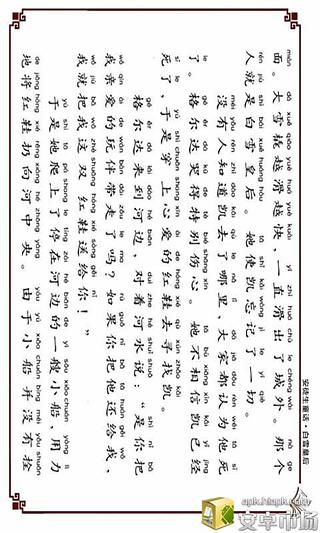 安徒生童话·白雪皇后
miàn dà xuě qiāo yuè huá yuè kuài yì zhí huá chū le chéng wài nà ge
面。大雪橇越滑越快、一直滑出了城外。那个
rén jiù shì bái xuě huáng hòu tā shǐ kǎi wàng jì le yí qiè
人就是白雪皇后。她使凯忘记了一切。
méi yǒu rén zhī dào kǎi qù le nǎ lǐ dà jiā dōu rèn wéi tā sǐ
没有人知道凯去了哪里、大家都认为他死
le gé ěr dá kū de tè bié shāng xīn tā bù xiāng xìn kǎi yǐ jīng
了。格尔达哭得特别伤心。她不相信凯已经
sǐ le yú shì chuān shàng xīn ài de hóng xié qù xún zhǎo kǎi
死了、于是穿上心爱的红鞋去寻找凯。
gé ěr dá lái dào hé biān duì zhe hé shuǐ shuō shì nǐ bǎ
格尔达来到河边、对着河水说：“是你把
wǒ qīn ài de wán bàn dài zǒu le ma rú guǒ nǐ bǎ tā huán gěi wǒ
我亲爱的玩伴带走了吗？如果你把他还给我、
wǒ jiù bǎ wǒ zhè shuāng hóng xié sòng gěi nǐ
我就把我这双红鞋送给你！”
yú shì tā pá shàng le tíng zài hé biān de yì sōu xiǎo chuán yòng lì
于是她爬上了停在河边的一艘小船、用力
de jiāng hóng xié rēng xiàng hé zhōng yāng yóu yú xiǎo chuán bìng méi yǒu shuān
地将红鞋扔向河中央。由于小船并没有拴
apk.hiapk.com
安卓市场